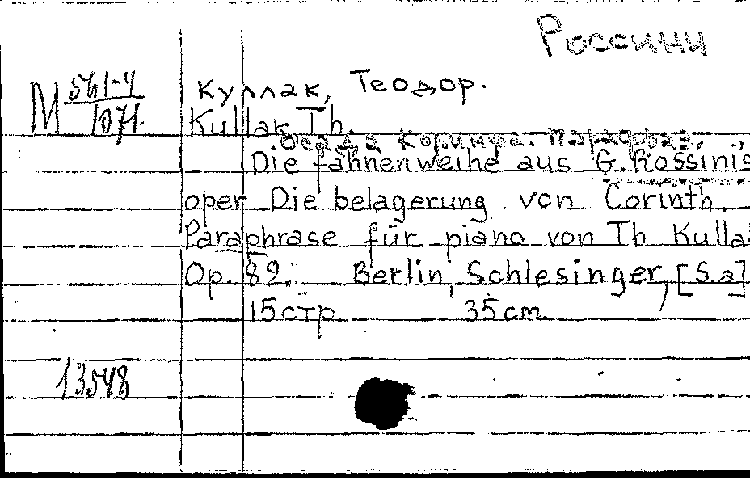 Россини
М 561-4
1071
Куллак, Теодор.
Kullak Th.
Осада Коринфа. Парафраз.
Die fahnenweihe aus G. Rossinis
oper Die belagerung von Corinth.
Paraphrase für piano von Th Kullak
Op. 82. Berlin, Schlesinger, [S.a]
15 стр 35 cm
13548